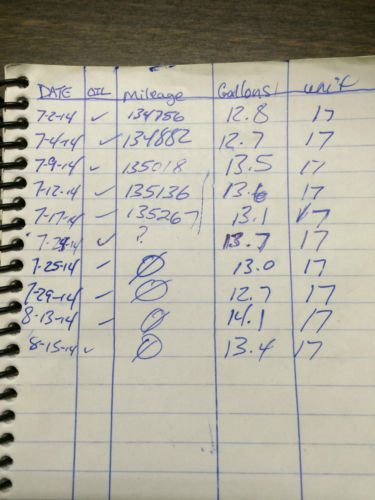 DATE OIL Mileage Gallons unit
7-2-14 ✓ 134756 12.8 17
7-4-14 ✓ 134882 12.7 17
7-9-14 ✓ 135018 13.5 17
7-12-14 ✓ 135136 13.6 17
7-17-14 ✓ 135267 13.1 17
✓ ? 13.7 17
7-25-14 ✓ Ø 13.0 17
7-29-14 ✓ Ø 12.7 17
8-13-14 ✓ Ø 14.1 17
8-15-14 ✓ Ø 13.4 17